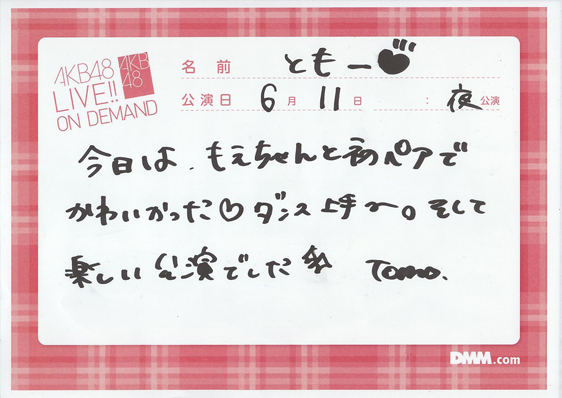 AKB48
LIVE!!
ON DEMAND
AKB
48
名前 ともー
公演日 6月11日 : 夜公演
今日は、もえちゃんと初ペアで
かわいかった♡ダンス上手〜。そして
楽しい公演でした☆ Tomo.
DMM.com